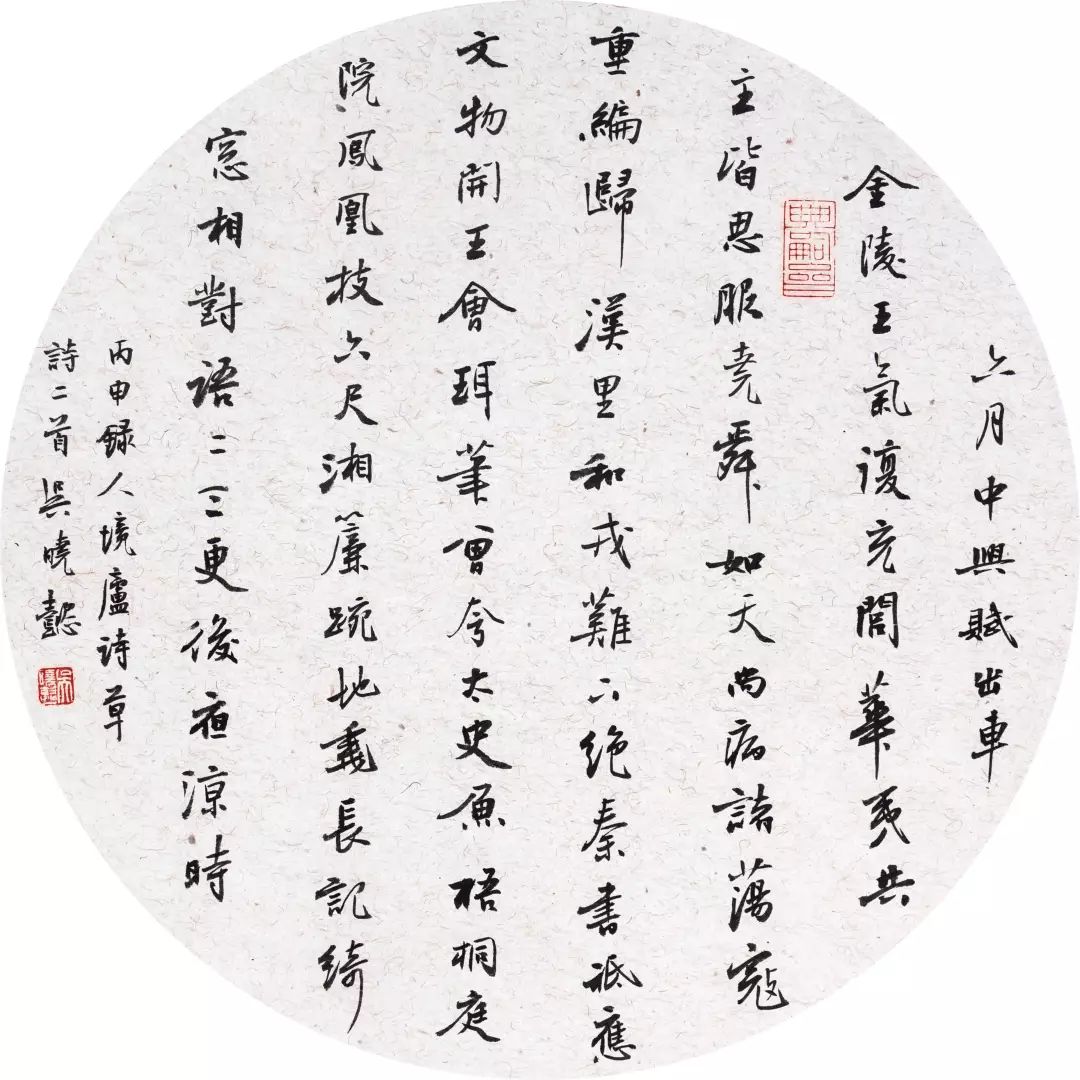 六月中興賦出車
金陵王氣復充閭華夷共
主皆思服堯舜如天尚病諸蕩寇
重編歸漢里和戎難下絕秦書祗應
文物開王會珥筆曾夸太史魚梧桐庭
院鳳凰枝六尺湘簾踠地垂長記綺
窓相對語二三更後夜涼時
丙申録人境廬詩草
詩二首吳曉懿